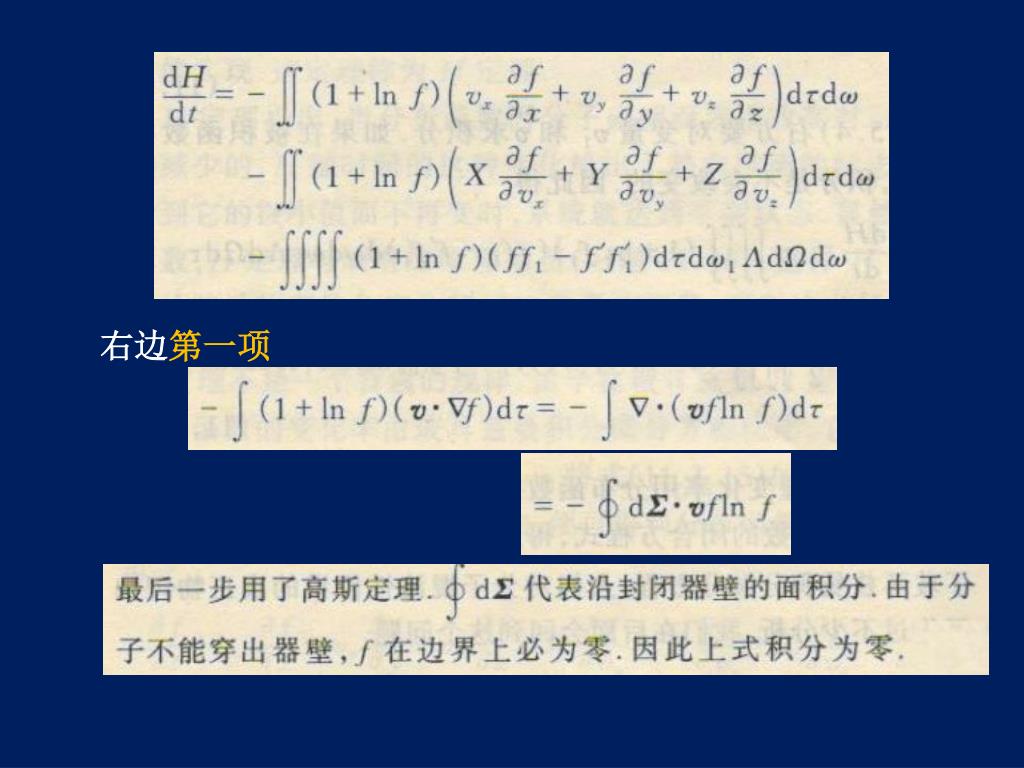 dH/dt = − ∬ (1 + ln f)(vₓ ∂f/∂x + v_y ∂f/∂y + v_z ∂f/∂z)dτdω
− ∬ (1 + ln f)(X ∂f/∂vₓ + Y ∂f/∂v_y + Z ∂f/∂v_z)dτdω
− ∬∬ (1 + ln f)(ff₁ − f′f₁′)dτdω₁ΛdΩdω
右边第一项
− ∫ (1 + ln f)(v·∇f)dτ = − ∫ ∇·(vfln f)dτ
= − ∮ dΣ·vfln f
最后一步用了高斯定理.∮ dΣ 代表沿封闭器壁的面积分.由于分
子不能穿出器壁,f 在边界上必为零.因此上式积分为零.